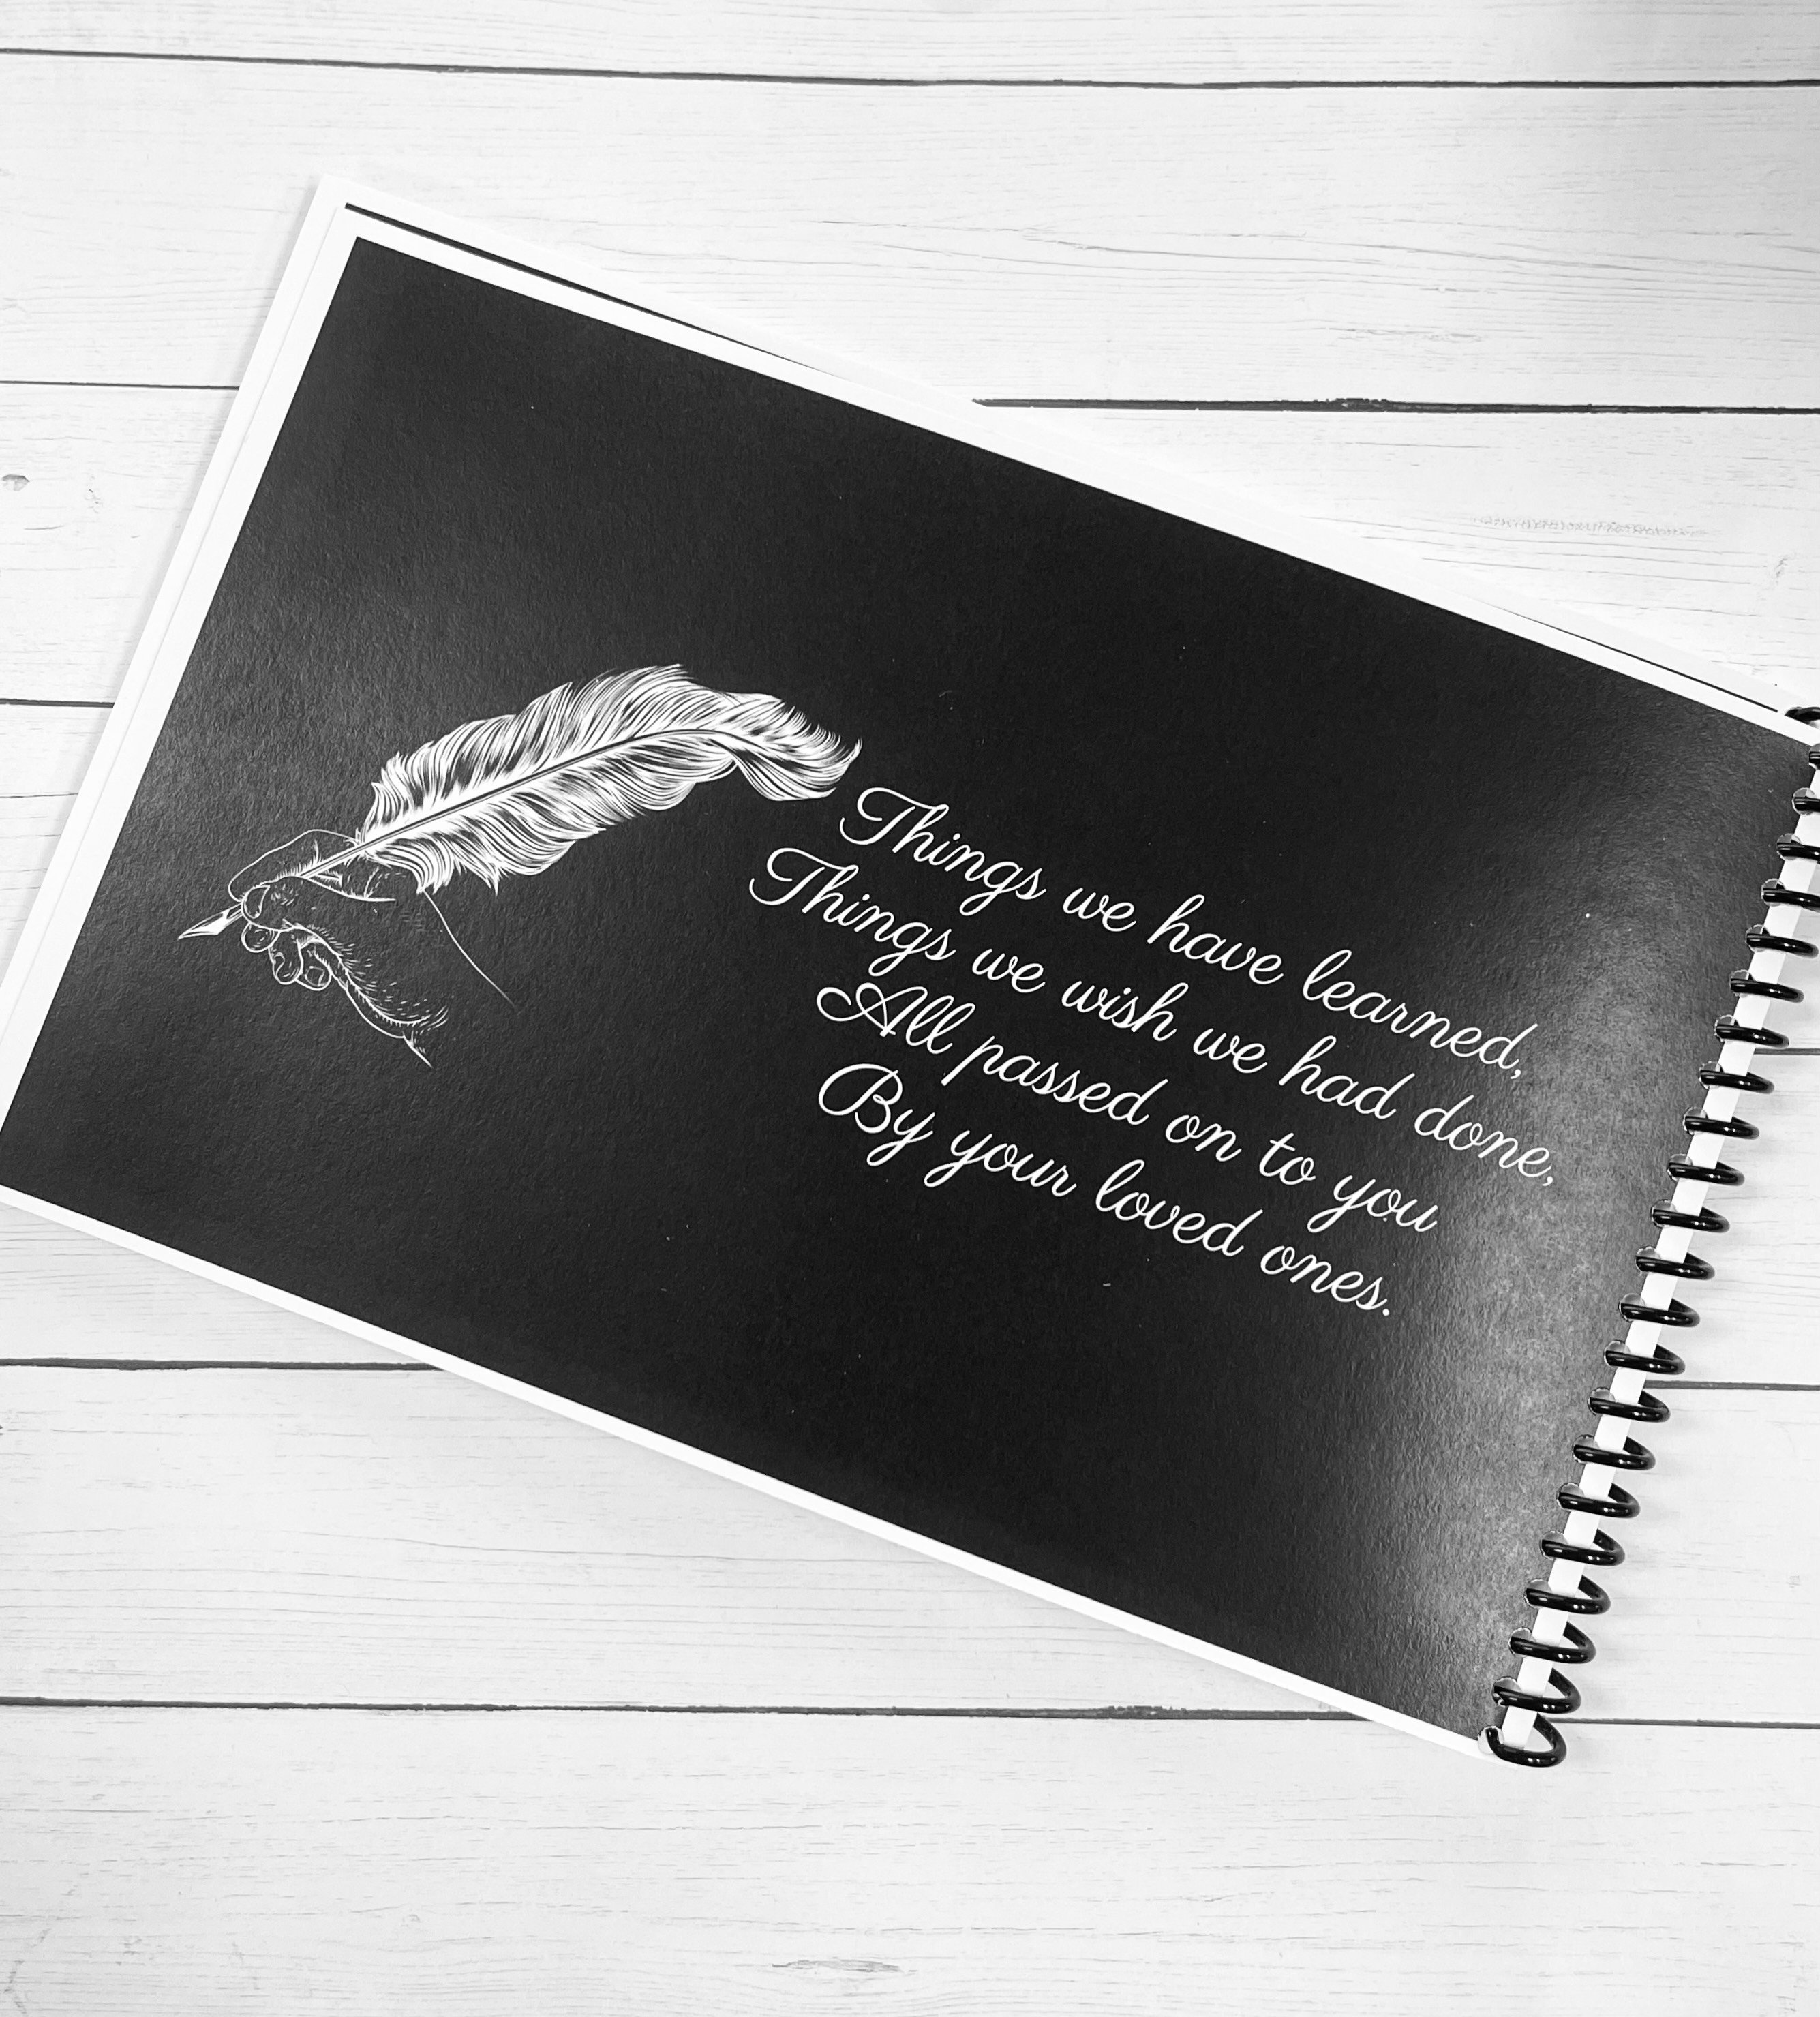 Things we have learned,
Things we wish we had done,
All passed on to you
By your loved ones.